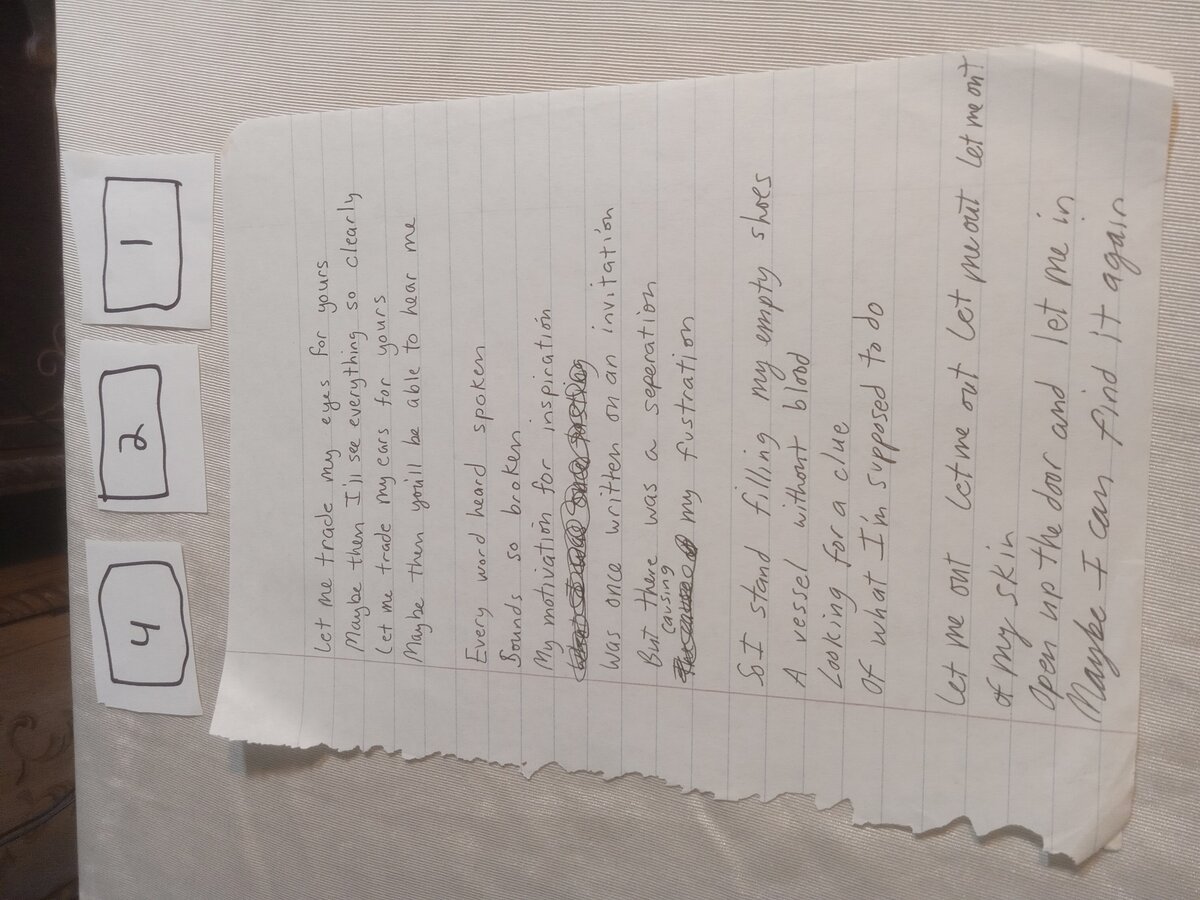 4
2
1
Let me trade my eyes for yours
Maybe then I'll see everything so clearly
Let me trade my ears for yours
Maybe then you'll be able to hear me
Every word heard spoken
Sounds so broken
My motivation for inspiration
Was once written on an invitation
But there was a seperation
causing
my fustration
So I stand filling my empty shoes
A vessel without blood
Looking for a clue
Of what I'm supposed to do
Let me out Let me out Let me out Let me out
of my skin
Open up the door and let me in
Maybe I can find it again